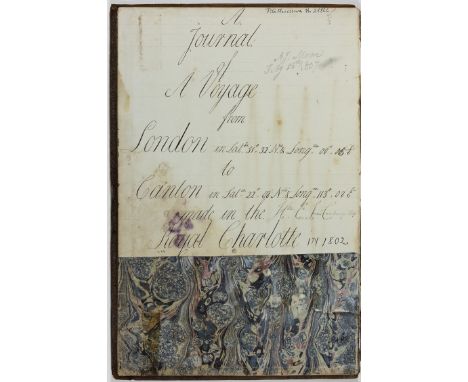 A
Journal
of
A Voyage
from
London in Lat. 51°. 32 N. & Long. 00°. 06 E
to
Canton in Lat. 23°. 08 N. & Long. 113°. 02 E
made in the
Royal Charlotte in 1802